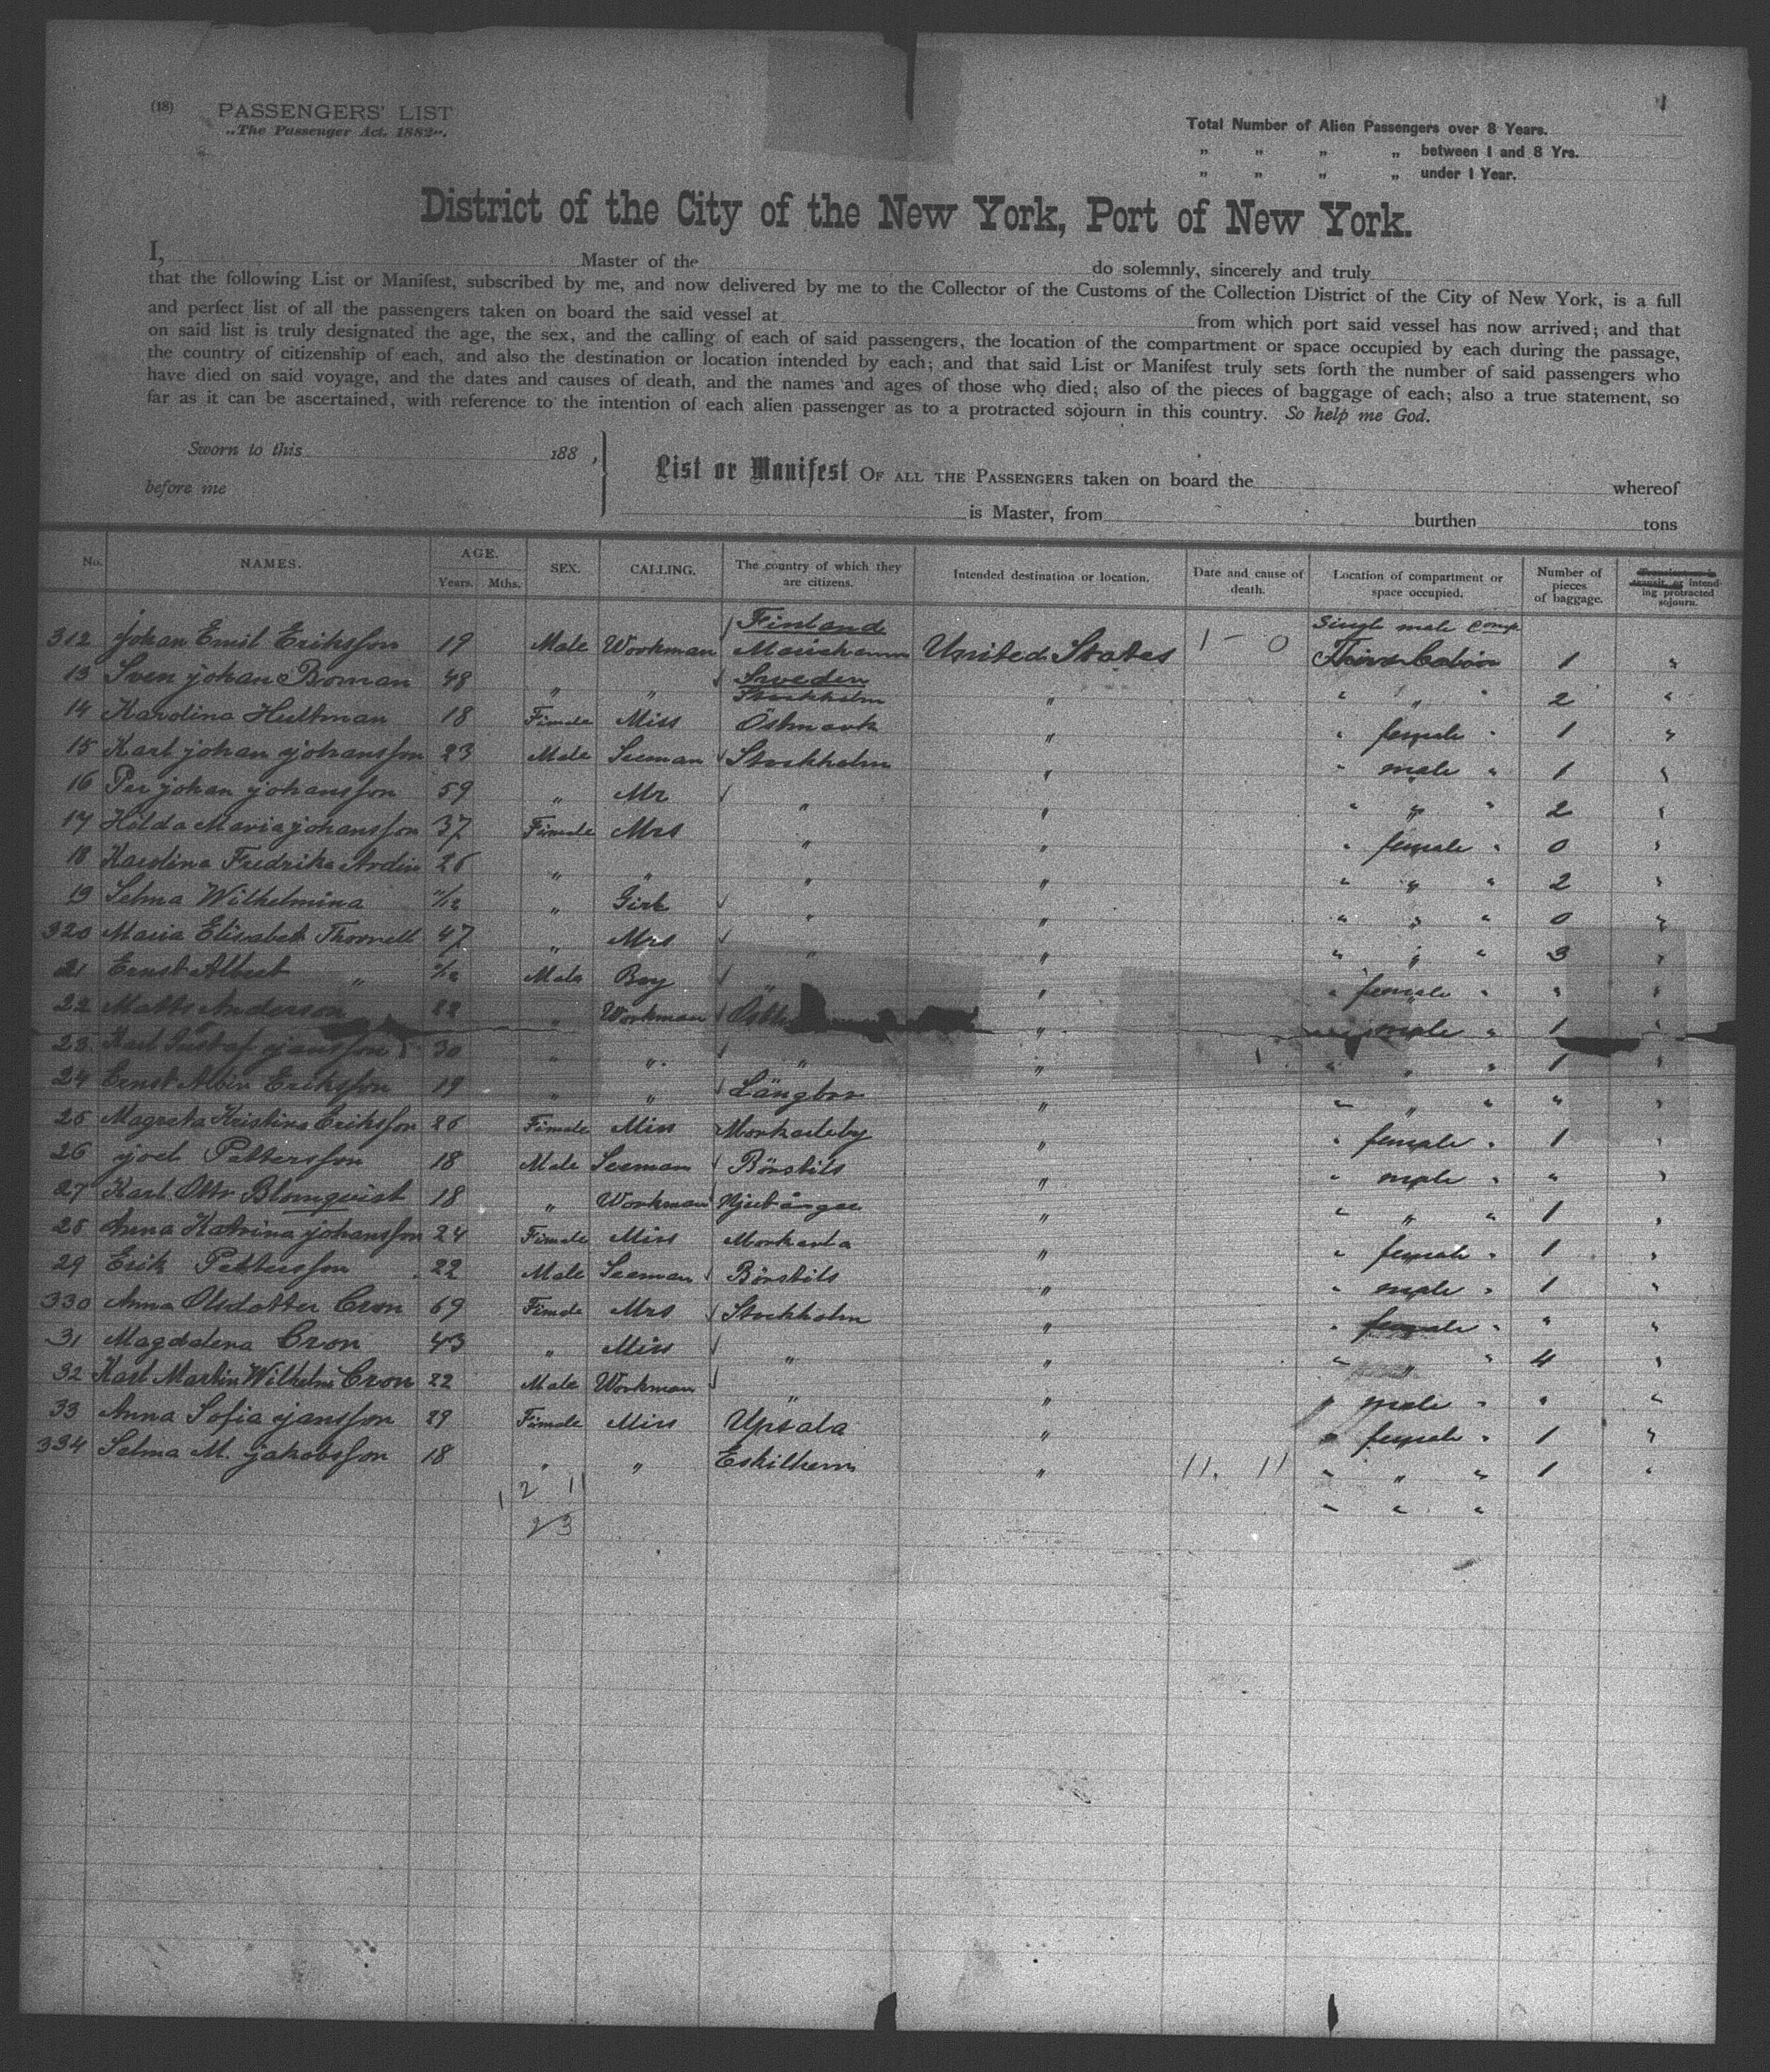 (18) PASSENGERS' LIST
„The Passenger Act, 1882".
1
Total Number of Alien Passengers over 8 Years.
„ „ „ „ between 1 and 8 Yrs.
„ „ „ „ under 1 Year.
District of the City of the New York, Port of New York.
I, Master of the do solemnly, sincerely and truly
that the following List or Manifest, subscribed by me, and now delivered by me to the Collector of the Customs of the Collection District of the City of New York, is a full
and perfect list of all the passengers taken on board the said vessel at from which port said vessel has now arrived; and that
on said list is truly designated the age, the sex, and the calling of each of said passengers, the location of the compartment or space occupied by each during the passage,
the country of citizenship of each, and also the destination or location intended by each; and that said List or Manifest truly sets forth the number of said passengers who
have died on said voyage, and the dates and causes of death, and the names and ages of those who died; also of the pieces of baggage of each; also a true statement, so
far as it can be ascertained, with reference to the intention of each alien passenger as to a protracted sojourn in this country. So help me God.
Sworn to this 188 ,
before me
List or Manifest OF ALL THE PASSENGERS taken on board the whereof
is Master, from burthen tons
No. NAMES. AGE. Years. Mths. SEX. CALLING. The country of which they are citizens. Intended destination or location. Date and cause of death. Location of compartment or space occupied. Number of pieces of baggage. transit, or intending protracted sojourn.
Finland Single male comp
312 Johan Emil Eriksson 19 Male Workman Mariehamn United States 1 - 0 Third Cabin 1 "
Sweden
13 Sven Johan Boman 48 " " Stockholm " " " " 2 "
14 Karolina Hultman 18 Fimale Miss Östmark " " female " 1 "
15 Karl Johan Johansson 23 Male Seeman Stockholm " " male " 1 "
16 Per Johan Johansson 59 " Mr " " " " " 2 "
17 Hilda Maria Johansson 37 Fimale Mrs " " " female " 0 "
18 Karolina Fredrika Ardin 26 " " " " " " " 2 "
19 Selma Wilhelmina " Girl " " " " " 0 "
320 Maria Elisabet Thornell 47 " Mrs " " " " " 3 "
21 Ernst Albert " Male Boy " " " female " " "
22 Matts Anderson 22 " Workman " male " 1 "
23 Karl Gustaf Jansson 30 " " " " " " " 1 "
24 Ernst Albin Eriksson 19 " " Långbro " " " " " "
25 Magreta Kristina Eriksson 26 Fimale Miss Morkarleby " " female " 1 "
26 Joel Pettersson 18 Male Seeman Börstils " " male " " "
27 Karl Otto Blomqvist 18 " Workman Njutånger " " " " 1 "
28 Anna Katrina Johansson 24 Fimale Miss Morkarla " " female " 1 "
29 Erik Pettersson 22 Male Seeman Börstils " " male " 1 "
330 Anna Olsdotter Cron 69 Fimale Mrs Stockholm " " female " " "
31 Magdalena Cron 43 " Miss " " " " " 4 "
32 Karl Martin Wilhelm Cron 22 Male Workman " " " male " " "
33 Anna Sofia Jansson 29 Fimale Miss Upsala " " female " 1 "
334 Selma M. Jakobsson 18 " " Eskilhem " 11. 11 " " " 1 "
1 2 11 " " "
23